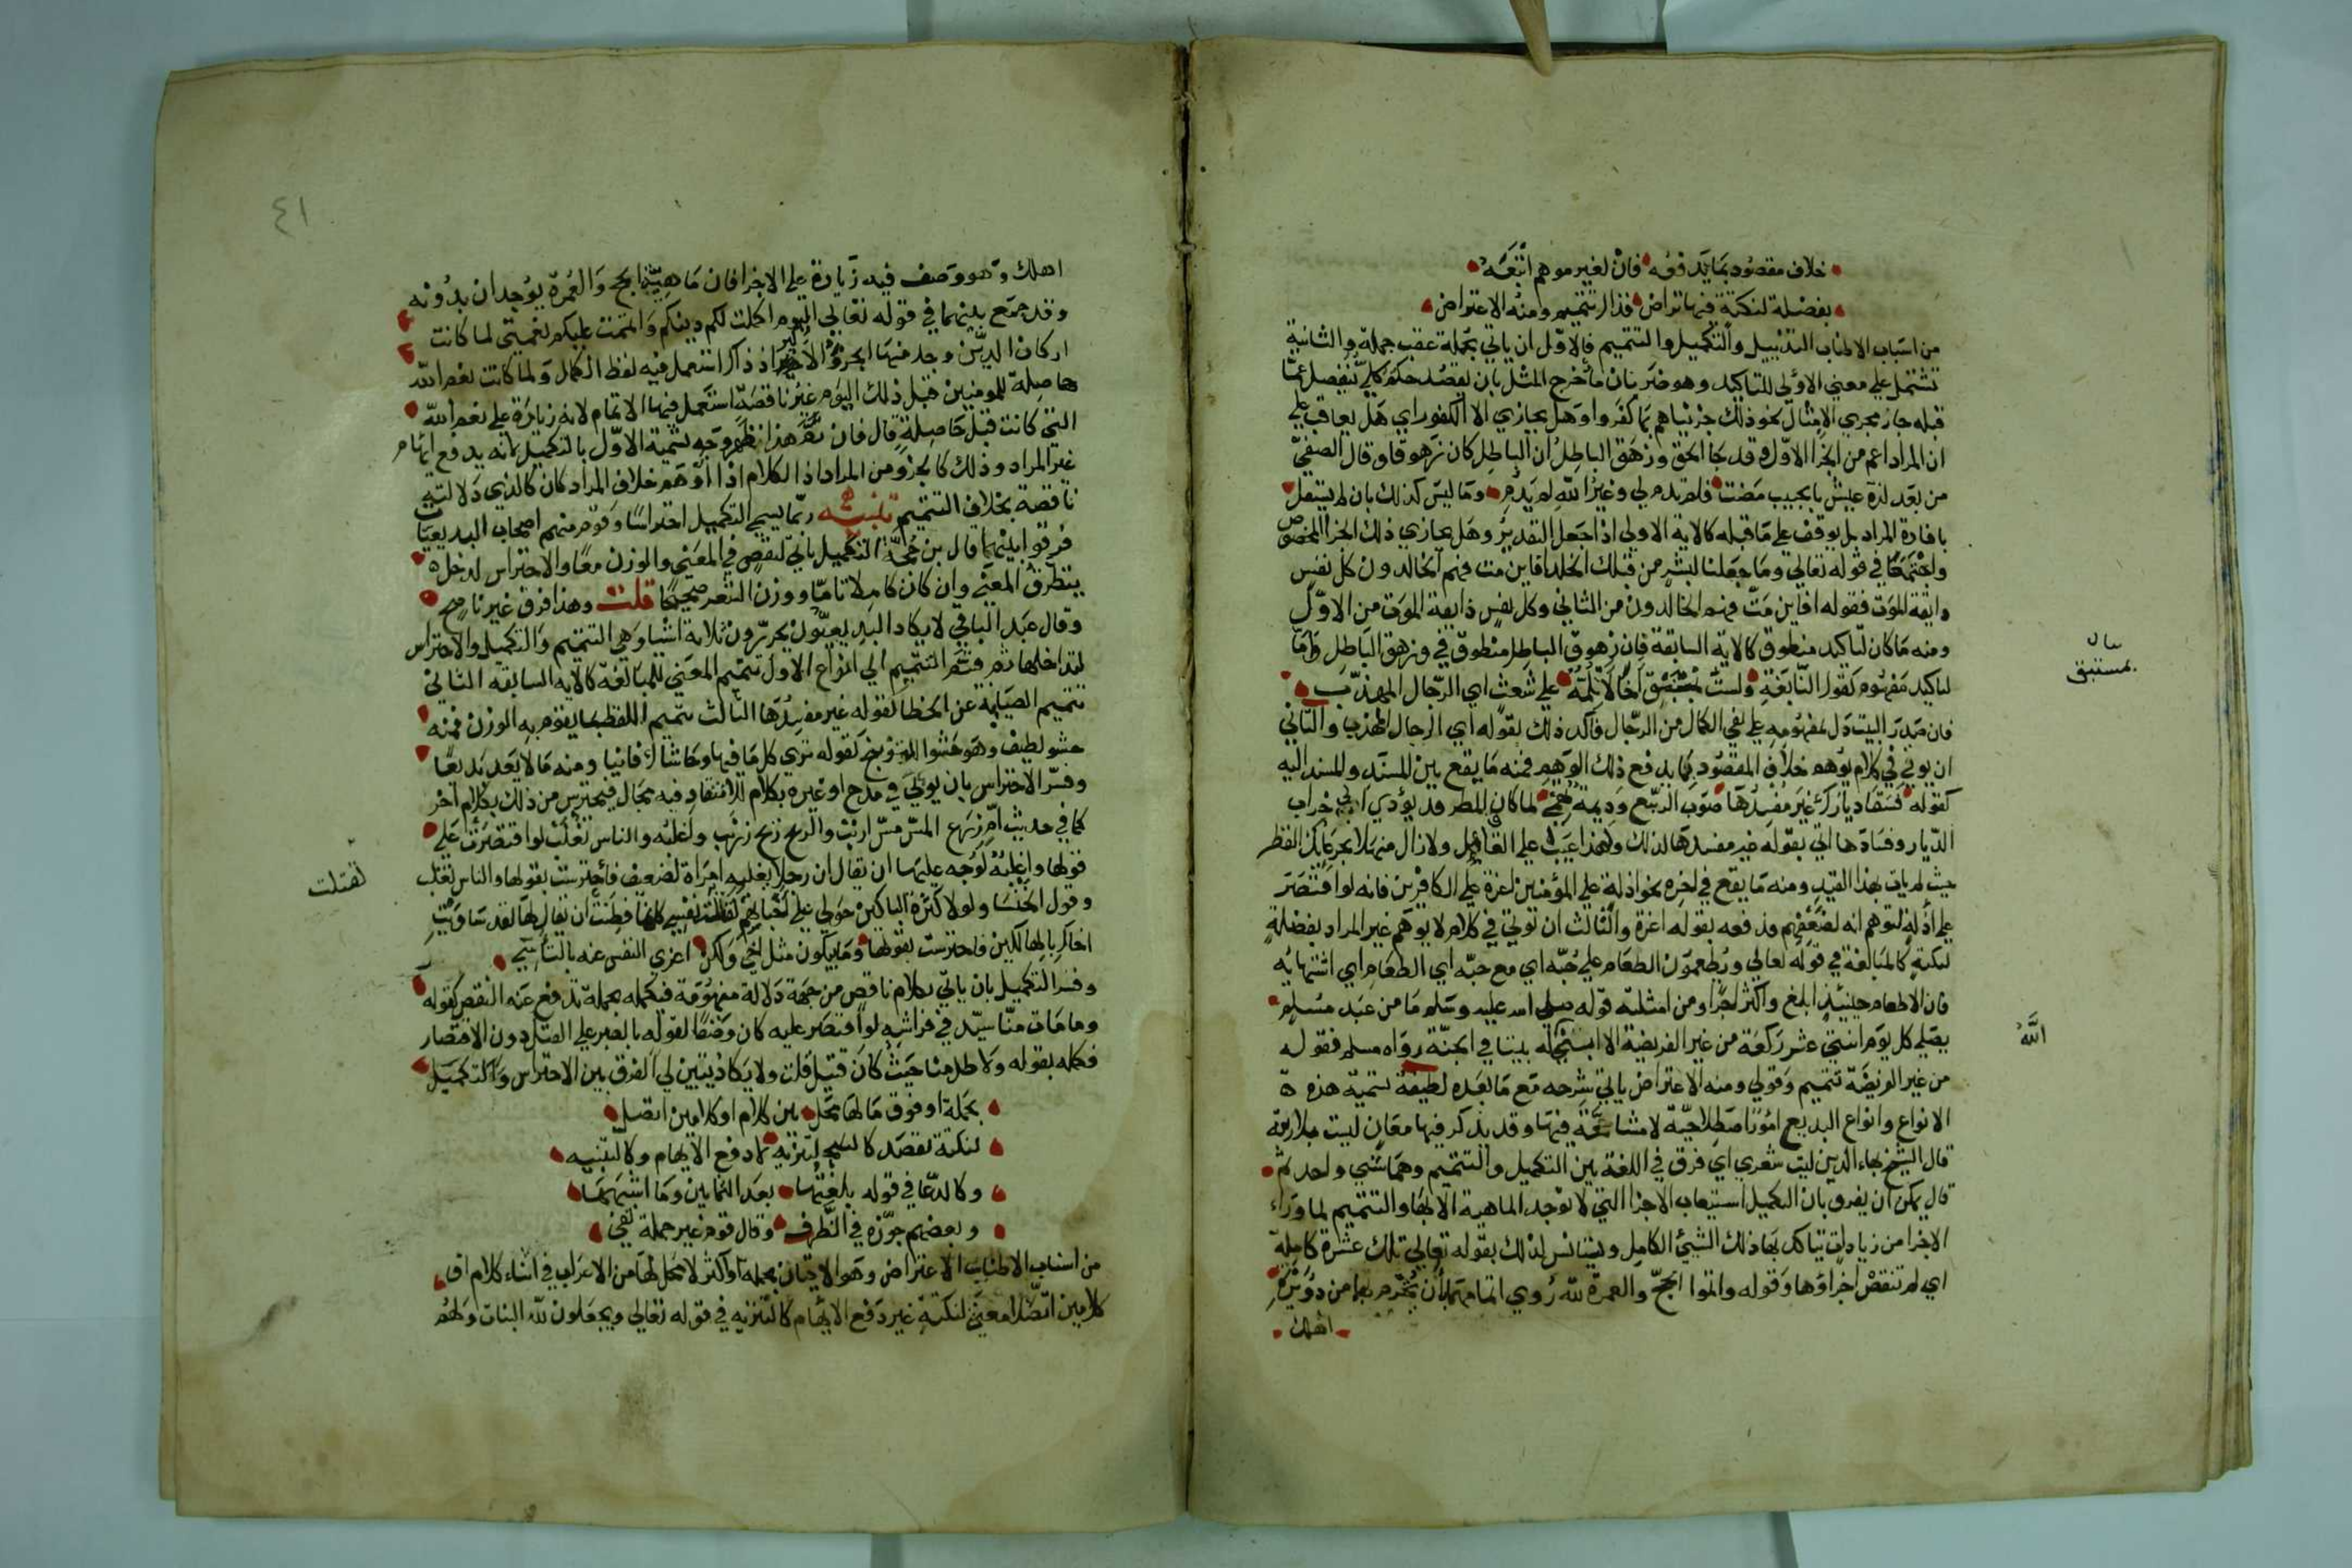 خلاف مقصود بما يدفعه فان لغير موهم اتبعه
بفضلة لنكتة فيها تراض فذا التتميم ومنه الاعتراض
من اسباب الاطناب التذييل والتكميل والتتميم فالاول ان ياتي بجملة عقب جملة والثانية
تشتمل على معنى الاولى للتاكيد وهو ضربان ما خرج المثل بان يقصد حكم كلي منفصل عما
قبله جار مجرى الامثال نحو ذلك جزيناهم بما كفروا وهل يجازي الا الكفور اي هل يعاقب على
ان المراد اعم من الجزا الاول وقد جا الحق وزهق الباطل ان الباطل كان زهوقا وقال الصفي
من بعد لذة عيش بالحبيب مضت فلم تدم لي وغير الله لم يدم وما ليس كذلك بان لم يستقل
بافادة المراد بل يوقف على ما قبله كالاية الاولى اذا جعل التقدير وهل يجازي ذلك الجزا المخصوص
واجتمعا في قوله تعالى وما جعلنا لبشر من قبلك الخلد افاين مت فهم الخالدون كل نفس
ذايقة الموت فقوله افاين مت فهم الخالدون من الثاني وكل نفس ذايقة الموت من الاول
ومنه ما كان لتاكيد منطوق كالاية السابقة فان زهوق الباطل منطوق في وزهق الباطل واما
لتاكيد مفهوم كقول النابغة ولست بمستبق اخا لا تلمه على شعث اي الرجال المهذب
فان صدر البيت دل بمفهومه على نفي الكمال من الرجال فاكد ذلك بقوله اي الرجال المهذب والثاني
ان يوتى في كلام يوهم خلاف المقصود بما يدفع ذلك الوهم فمنه ما يقع بين المسند والمسند اليه
كقوله فسقى ديارك غير مفسدها صوب الربيع وديمة تهمي لما كان المطر قد يؤدي الى خراب
الديار وفسادها اتى بقوله غير مفسدها لذلك ولهذا عيب على القائل ولا زال منهلا بجرعائك القطر
حيث لم يات بهذا القيد ومنه ما يقع في اخره نحو اذلة على المؤمنين اعزة على الكافرين فانه لو اقتصر
على اذلة لتوهم انه لضعفهم فدفعه بقوله اعزة والثالث ان توتي في كلام لا يوهم غير المراد بفضلة
لنكتة كالمبالغة في قوله تعالى ويطعمون الطعام على حبه اي مع حبه اي الطعام اي اشتهايه
فان الاطعام حينئذ ابلغ واكثر اجرا ومن امثلته قوله صلى الله عليه وسلم ما من عبد مسلم
يصلي كل يوم اثنتي عشر ركعة من غير الفريضة الا بنى له بيتا في الجنة رواه مسلم فقوله
من غير الفريضة تتميم وقولي ومنه الاعتراض ياتي شرحه مع ما بعده لطيفة تسمية هذه
الانواع وانواع البديع امور اصطلاحية لا مشاححة فيها وقد يذكر فيها معان ليست بلازمة
قال الشيخ بهاء الدين ليت شعري اي فرق في اللغة بين التكميل والتتميم وهما شي واحد ثم
قال يمكن ان يفرق بان التكميل استيعاب الاجزا التي لا توجد الماهية الا بها والتتميم لما وراء
الاجزا من زيادات يتاكد بها ذلك الشيئ الكامل ويستانس لذلك بقوله تعالى تلك عشرة كاملة
اي لم تنقص اجزاؤها وقوله واتموا الحج والعمرة لله روي اتمامهما ان يحرم بهما من دويرة
اهلك
بمستبق
الله
٤١
اهلك وهو وصف فيه زيادة على الاجزا فان ماهية الحج والعمرة يوجدان بدونه
وقد جمع بينهما في قوله تعالى اليوم اكملت لكم دينكم واتممت عليكم نعمتي لما كانت
اركان الدين وجد منها الجزؤ الاخير اذ ذاك استعمل فيه لفظ الكمال ولما كانت نعم الله
حاصلة للمومنين قبل ذلك اليوم غير ناقصة استعمل فيها الاتمام لانه زيادة على نعم الله
التي كانت قبل حاصلة قال فان تم هذا ظهر وجه تسمية الاول بالتكميل لانه يدفع ايهام
غير المراد وذلك كالجزؤ من المراد اذ الكلام اذا اوهم خلاف المراد كان كالذي دلالته
ناقصة بخلاف التتميم تنبيه ربما يسمى التكميل احتراسا وقوم منهم اصحاب البديعيات
فرقوا بينهما قال بن حجة التكميل ياتي لنقص في المعنى والوزن معا والاحتراس لدخل
يتطرق المعنى وان كان كاملا تاما ووزن الشعر صحيحا قلت وهذا فرق غير ناصح
وقال عبد الباقي لا يكاد البديعيون يحررون ثلاثة اشيا وهي التتميم والتكميل والاحتراس
لتداخلها ثم قسم التتميم الى انواع الاول تتميم المعنى للمبالغة كالاية السابقة الثاني
تتميم الصيانة عن الخطا كقوله غير مفسدها الثالث تتميم اللفظ بما يقوم به الوزن فمنه
حشو لطيف وهو حشوا اللوزينج كقوله ترى كل ما فيها وحاشاك فانيا ومنه ما لا يعد بديعا
وفسر الاحتراس بان يوتى في مدح او غيره بكلام للانتقاد فيه مجال فيحترس من ذلك بكلام اخر
كما في حديث ام زرع المس مس ارنب والريح ريح زرنب واغلبه والناس تغلب لو اقتصرت على
قولها واغلبه لوجه عليها ان يقال ان رجلا يغلبه امراة لضعيف فاحترست بقولها والناس تغلب
وقول الخنسا ولولا كثرة الباكين حولي على اخوانهم لقتلت نفسي كانها فطنت ان يقال لها لقد ساويت
اخاك بالهالكين فاحترست بقولها وما يبكون مثل اخي ولكن اعزي النفس عنه بالتاسي
وفسر التكميل بان ياتي بكلام ناقص من جهة دلالة مفهومة فتكمله بجملة تدفع عنه النقص كقوله
وما مات منا سيد في فراشه لو اقتصر عليه كان وصفا لقوله بالصبر على القتل دون الانتصار
فكمله بقوله ولا طل منا حيث كان قتيل قلت ولا يكاد يتبين لي الفرق بين الاحتراس والتكميل
بجملة او فوق ما لها محل بين كلام او كلامين اتصل
لنكتة تقصد كالتنزيه لا دفع الايهام وكالتنبيه
وكالدعا في قوله بلغتها بعد الثمانين وما اشبهها
وبعضهم جوزه في الطرف وقال قوم غير جملة تفي
من اسباب الاطناب الاعتراض وهو الاتيان بجملة او اكثر لا محل لها من الاعراب في اثناء كلام او
كلامين اتصلا معنى لنكتة غير دفع الايهام كالتنزيه في قوله تعالى ويجعلون لله البنات ولهم
لقتلت